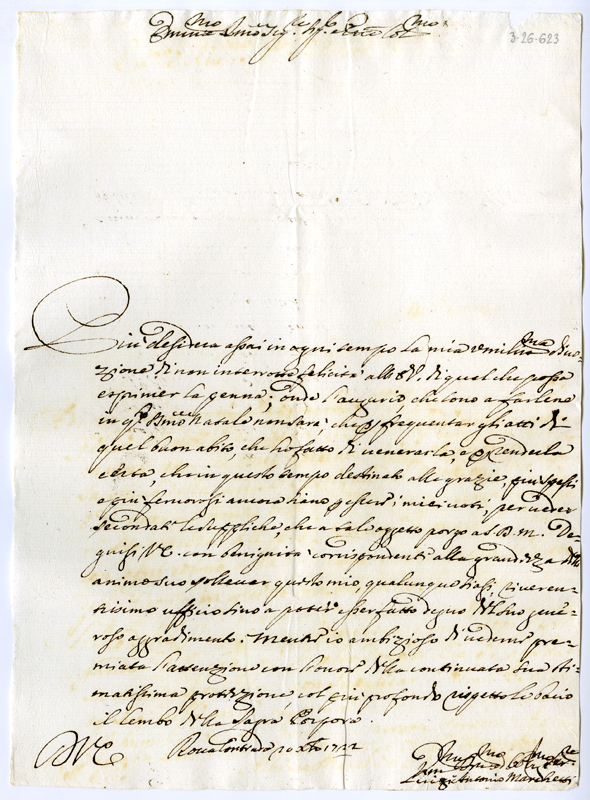 Em.mo
3-26-623
Più desidera assai in ogni tempo la mia umiliss.ma divo-
zione di non interrotte felicità all' di quel che possa
esprimer la penna; onde l'augurio che sono a farlene
in q.to Natale non sarà, che p frequentar gli atti di
quel buon abito, che ho fatto di venerarla, e p renderla
certa, che in questo tempo destinato alle grazie, più spessi
e più fervorosi ancora siano i miei voti, per veder
secondate le suppliche, che a tale oggetto porgo a S. D. M. De-
gnisi V.E. con benignità corrispondente alla grandezza dell'
animo suo sollevar questo mio, qualunque siasi, riveren-
tissimo ufficio sino a poter esser fatto degno del suo gene-
roso aggradimento. Mentre io ambizioso di vedere pre-
miata l'attenzione con l'onore della continuata sua sti-
matissima protezione, col più profondo rispetto le bacio
il lembo della Sagra Porpora.
Di V.E.
Rocca Contrada 20 Xbre
Luigi Antonio Marchetti